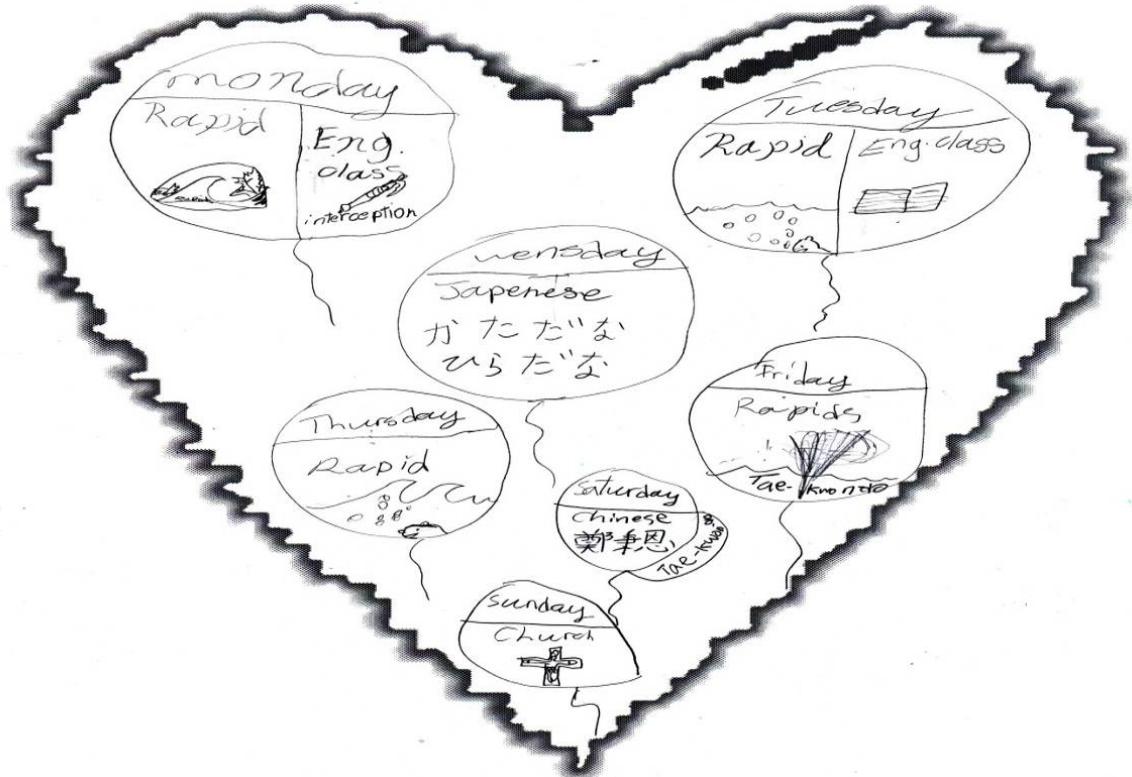 monday
Rapid
Eng.
class
interception
Tuesday
Rapid
Eng. class
wensday
Japenese
か た だ な
ひ ら だ な
Thursday
Rapid
Friday
Rapids
Tae-kwondo
Saturday
Chinese
鄭秉恩
Tae-kwondo
Sunday
Church